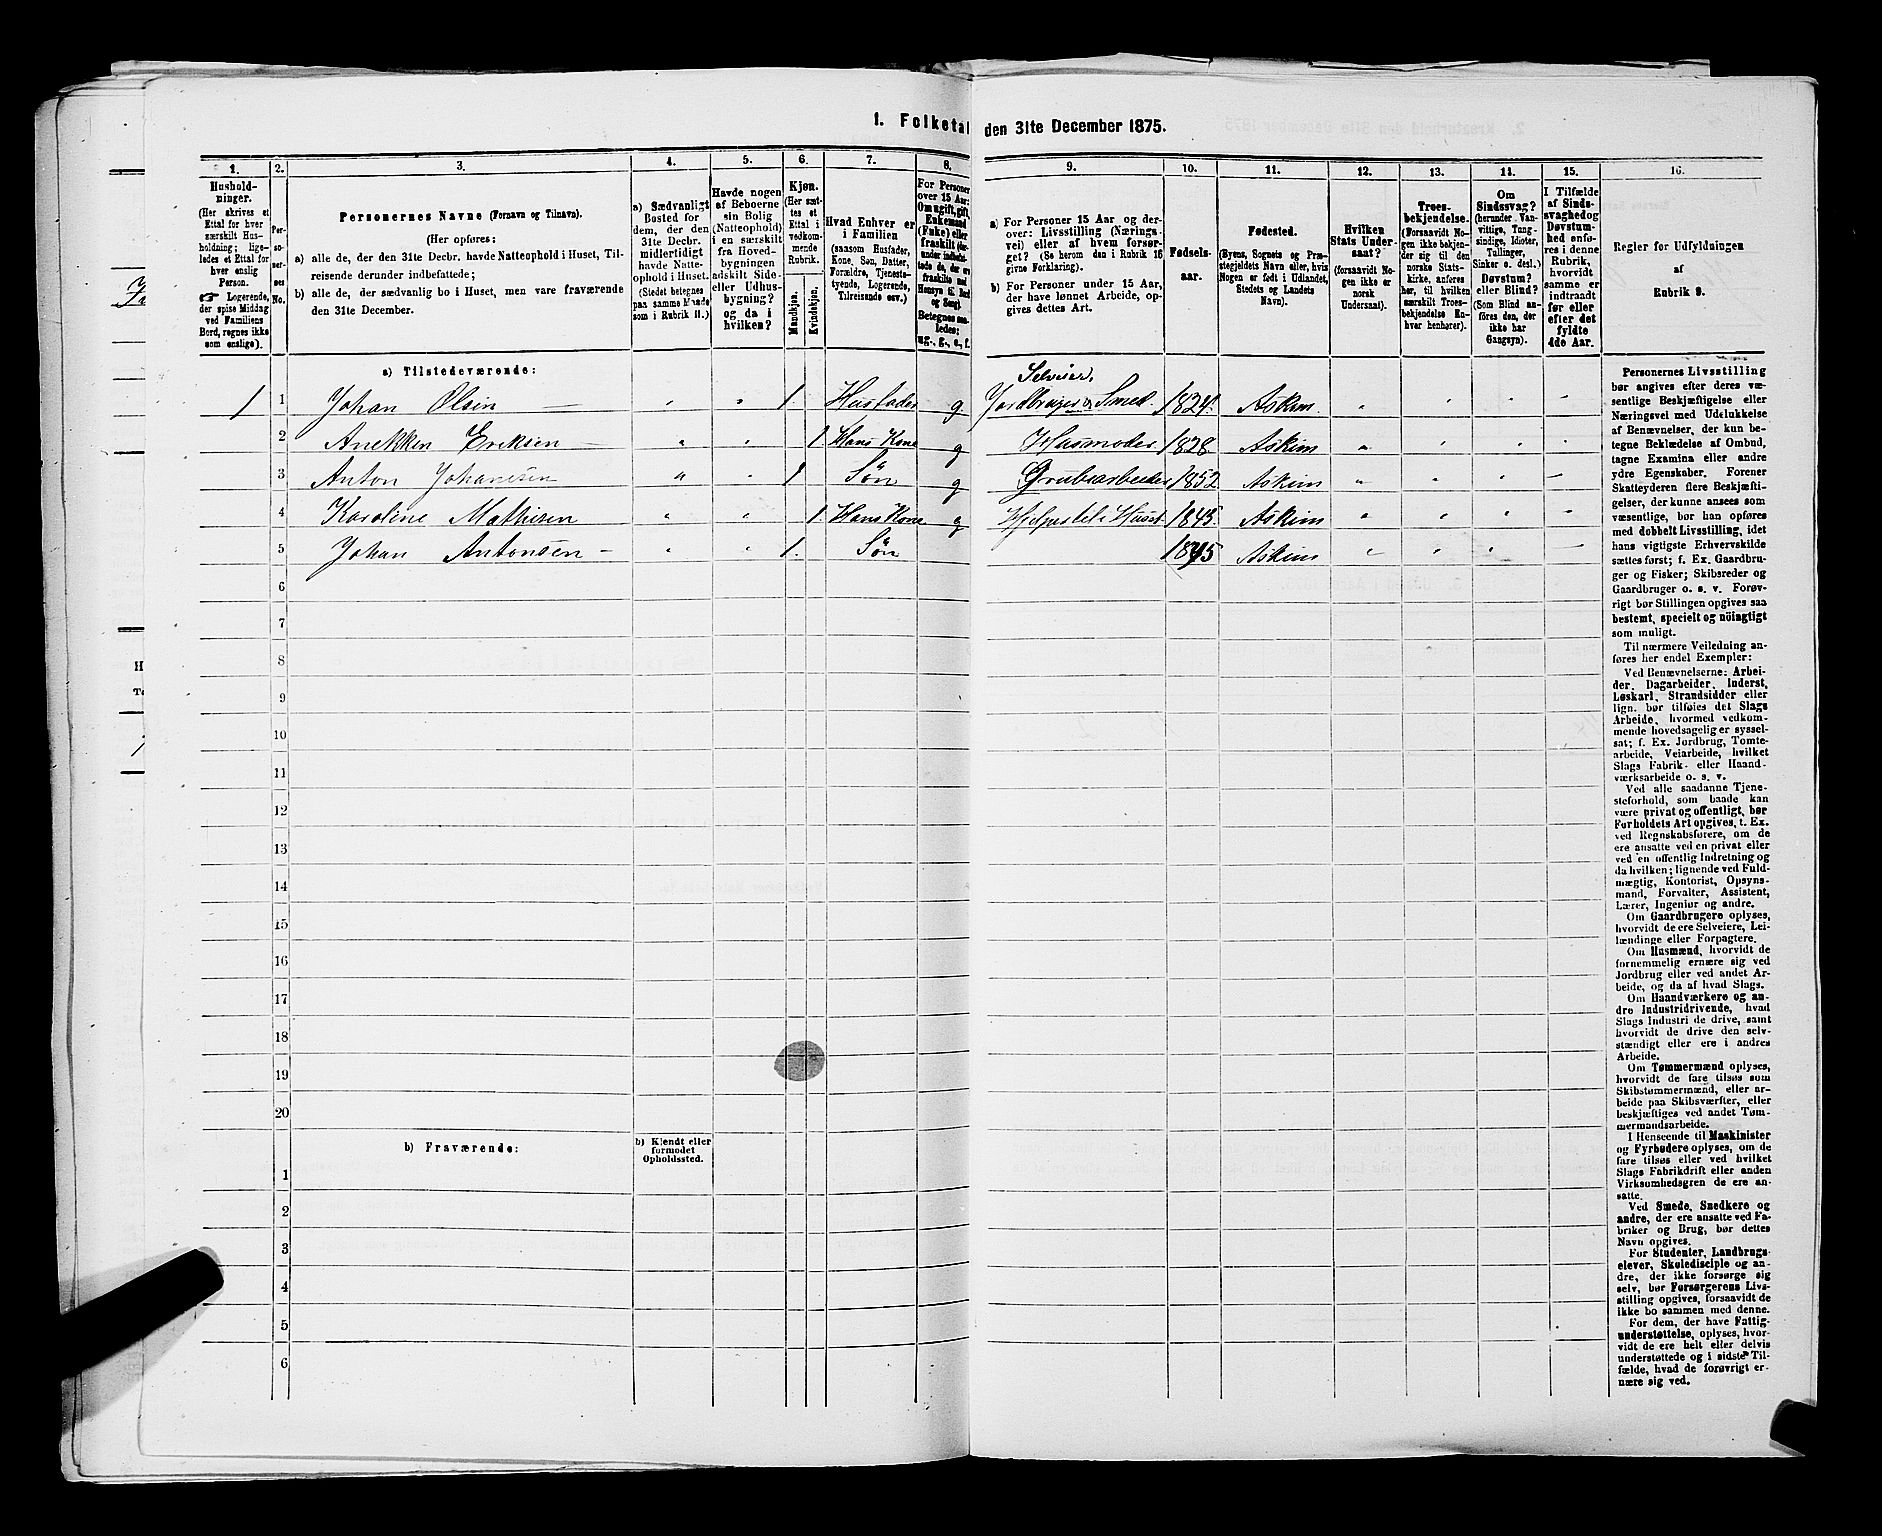 1. Folketal den 31te December 1875.
1. 2. 3. 4. 5. 6. 7. 8. 9. 10. 11. 12. 13. 14. 15. 16.
Hushold-
ninger.
(Her skrives et
Ettal for hver
særskilt Hus-
holdning; lige-
ledes et Ettal for
hver enslig
Person.
☞ Logerende,
der spise Middag
ved Familiens
Bord, regnes ikke
som enslige).
Per-
so-
ner-
nes
No.
Personernes Navne (Fornavn og Tilnavn).
(Her opføres:
a) alle de, der den 31te Decbr. havde Natteophold i Huset, Til-
reisende derunder indbefattede;
b) alle de, der sædvanlig bo i Huset, men vare fraværende
den 31te December.
a) Sædvanligt
Bosted for
dem, der den
31te Decbr.
midlertidigt
havde Natte-
ophold i Huset.
(Stedet betegnes
paa samme Maade
som i Rubrik 11.)
Havde nogen
af Beboerne
sin Bolig
(Natteophold)
i en særskilt
fra Hoved-
bygningen
adskilt Side-
eller Udhus-
bygning?
og da i
hvilken?
Kjøn.
(Her sæt-
tes et
Ettal i
vedkom-
mende
Rubrik.
Mandkjøn.
Kvindekjøn.
Hvad Enhver er
i Familien
(saasom Husfader,
Kone, Søn, Datter,
Forældre, Tjeneste-
tyende, Logerende,
Tilreisende osv.)
For Personer
over 15 Aar:
Om ugift, gift,
Enkemand
(Enke) eller
fraskilt
Betegnes saa-
ledes:
ug., g., e., f.
a) For Personer 15 Aar og der-
over: Livsstilling (Nærings-
vei) eller af hvem forsør-
get? (Se herom den i Rubrik 16
givne Forklaring).
b) For Personer under 15 Aar,
der have lønnet Arbeide, op-
gives dettes Art.
Fødsels-
aar.
Fødested.
(Byens, Sognets og Præ-
stegjeldets Navn eller, hvis
Nogen er født i Udlandet,
Stedets og Landets
Navn).
Hvilken
Stats Under-
saat?
(forsaavidt No-
gen ikke er
norsk
Undersaat).
Troes-
bekjendelse.
(Forsaavidt No-
gen ikke bekjen-
der sig til den
norske Stats-
kirke, anføres
her, til hvilken
særskilt Troes-
bekjendelse En-
hver henhører).
Om
Sindssvag?
(herunder Van-
vittige, Tung-
sindige, Idioter,
Tullinger,
Sinker o. desl.)
Døvstum?
eller Blind?
(Som Blind an-
føres den, der
ikke har
Gangsyn).
I Tilfælde
af Sinds-
svaghed og
Døvstum-
hed anfø-
res i denne
Rubrik,
hvorvidt
samme er
indtraadt
før eller
efter det
fyldte
4de Aar.
Regler for Udfyldningen
af
Rubrik 9.
a) Tilstedeværende:
Selveier,
1 1 Johan Olsen — " " 1. Husfader g Jordbruger og Smed. 1824. Askim. " " " "
2 Anekken Eriksen — " " 1. Hans Kone g Husmoder 1828. Askim " " " "
3 Anton Johanesen " " 1 Søn g Grubearbeider 1852 Askim " " " —
4 Karoline Mathisen " " 1. Hans Kone g Hjelper til i Huset 1845. Askim " " " "
5 Johan Antonsen — " " 1. Søn Askim " " " —
6
7
8
9
10
11
12
13
14
15
16
17
18
19
20
b) Fraværende: b) Kjendt eller
formodet
Opholdssted.
1
2
3
4
5
6
Personernes Livsstilling
bør angives efter deres væ-
sentlige Beskjæftigelse eller
Næringsvei med Udelukkelse
af Benævnelser, der kun be-
tegne Beklædelse af Ombud,
tagne Examina eller andre
ydre Egenskaber. Forener
Skatteyderen flere Beskjæfti-
gelser, der kunne ansees som
væsentlige, bør han opføres
med dobbelt Livsstilling, idet
hans vigtigste Erhvervskilde
sættes først; f. Ex. Gaardbru-
ger og Fisker; Skibsreder og
Gaardbruger o. s. v. Forøv-
rigt bør Stillingen opgives saa
bestemt, specielt og nöiagtigt
som muligt.
Til nærmere Veiledning an-
føres her endel Exempler:
Ved Benævnelserne: Arbei-
der, Dagarbeider, Inderst,
Løskarl, Strandsidder eller
lign. bør tilføies det Slags
Arbeide, hvormed vedkom-
mende hovedsagelig er syssel-
sat; f. Ex. Jordbrug, Tomte-
arbeide, Veiarbeide, hvilket
Slags Fabrik- eller Haand-
værksarbeide o. s. v.
Ved alle saadanne Tjene-
steforhold, som baade kan
være privat og offentligt, bør
Forholdets Art opgives, t. Ex.
ved Regnskabsførere, om de
ere ansatte ved en privat eller
ved en offentlig Indretning og
da hvilken; lignende ved Fuld-
mægtig, Kontorist, Opsyns-
mand, Forvalter, Assistent,
Lærer, Ingeniør og andre.
Om Gaardbrugere oplyses,
hvorvidt de ere Selveiere, Lei-
lændinge eller Forpagtere.
Om Husmænd, hvorvidt de
fornemmelig ernære sig ved
Jordbrug eller ved andet Ar-
beide, og da af hvad Slags.
Om Haandværkere og an-
dre Industridrivende, hvad
Slags Industri de drive, samt
hvorvidt de drive den selv-
stændigt eller ere i andres
Arbeide.
Om Tømmermænd oplyses,
hvorvidt de fare tilsøs som
Skibstømmermænd, eller ar-
beide paa Skibsværfter, eller
beskjæftiges ved andet Tøm-
mermandsarbeide.
I Henseende til Maskinister
og Fyrbødere oplyses, om de
fare tilsøs eller ved hvilket
Slags Fabrikdrift eller anden
Virksomhedsgren de ere an-
satte.
Ved Smede, Snedkere og
andre, der ere ansatte ved Fa-
briker og Brug, bør dettes
Navn opgives.
For Studenter, Landbrugs-
elever, Skoledisciple og an-
dre, der ikke forsørge sig
selv, bør Forsørgerens Livs-
stilling opgives, forsaavidt de
ikke bo sammen med denne.
For dem, der have Fattig-
understøttelse, oplyses, hvor-
vidt de ere helt eller delvis
understøttede og i sidste Til-
fælde, hvad de forøvrigt er-
nære sig ved.